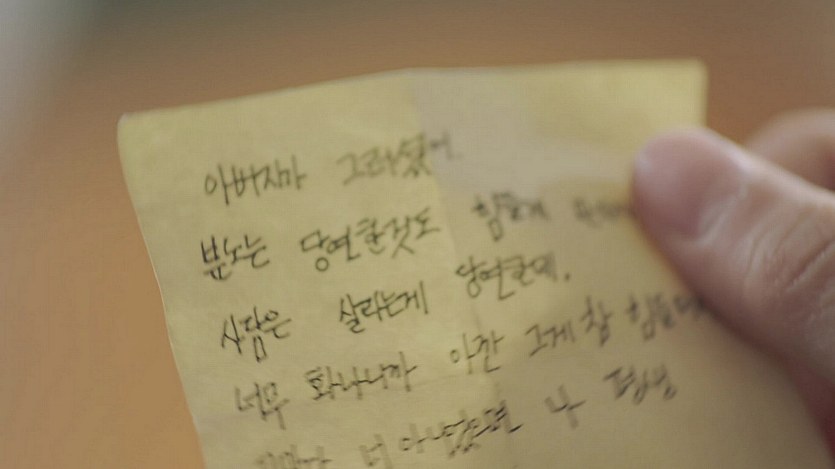 아버지가 그러셨어.
분노는 당연한것도 힘들게
사람은 살라는게 당연한데.
너무 화나니까 그게 참
너 아니었으면 나 평생